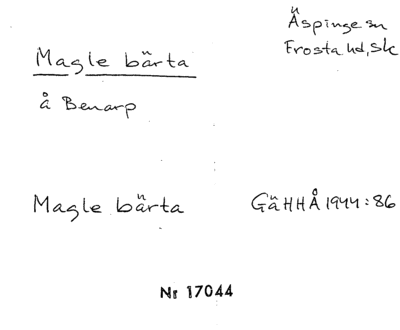 Äspinge sn
Frosta hd, Sk
Magle bärta
å Benarp
Magle bärta
GäHHÅ 1944:86
Nr 17044